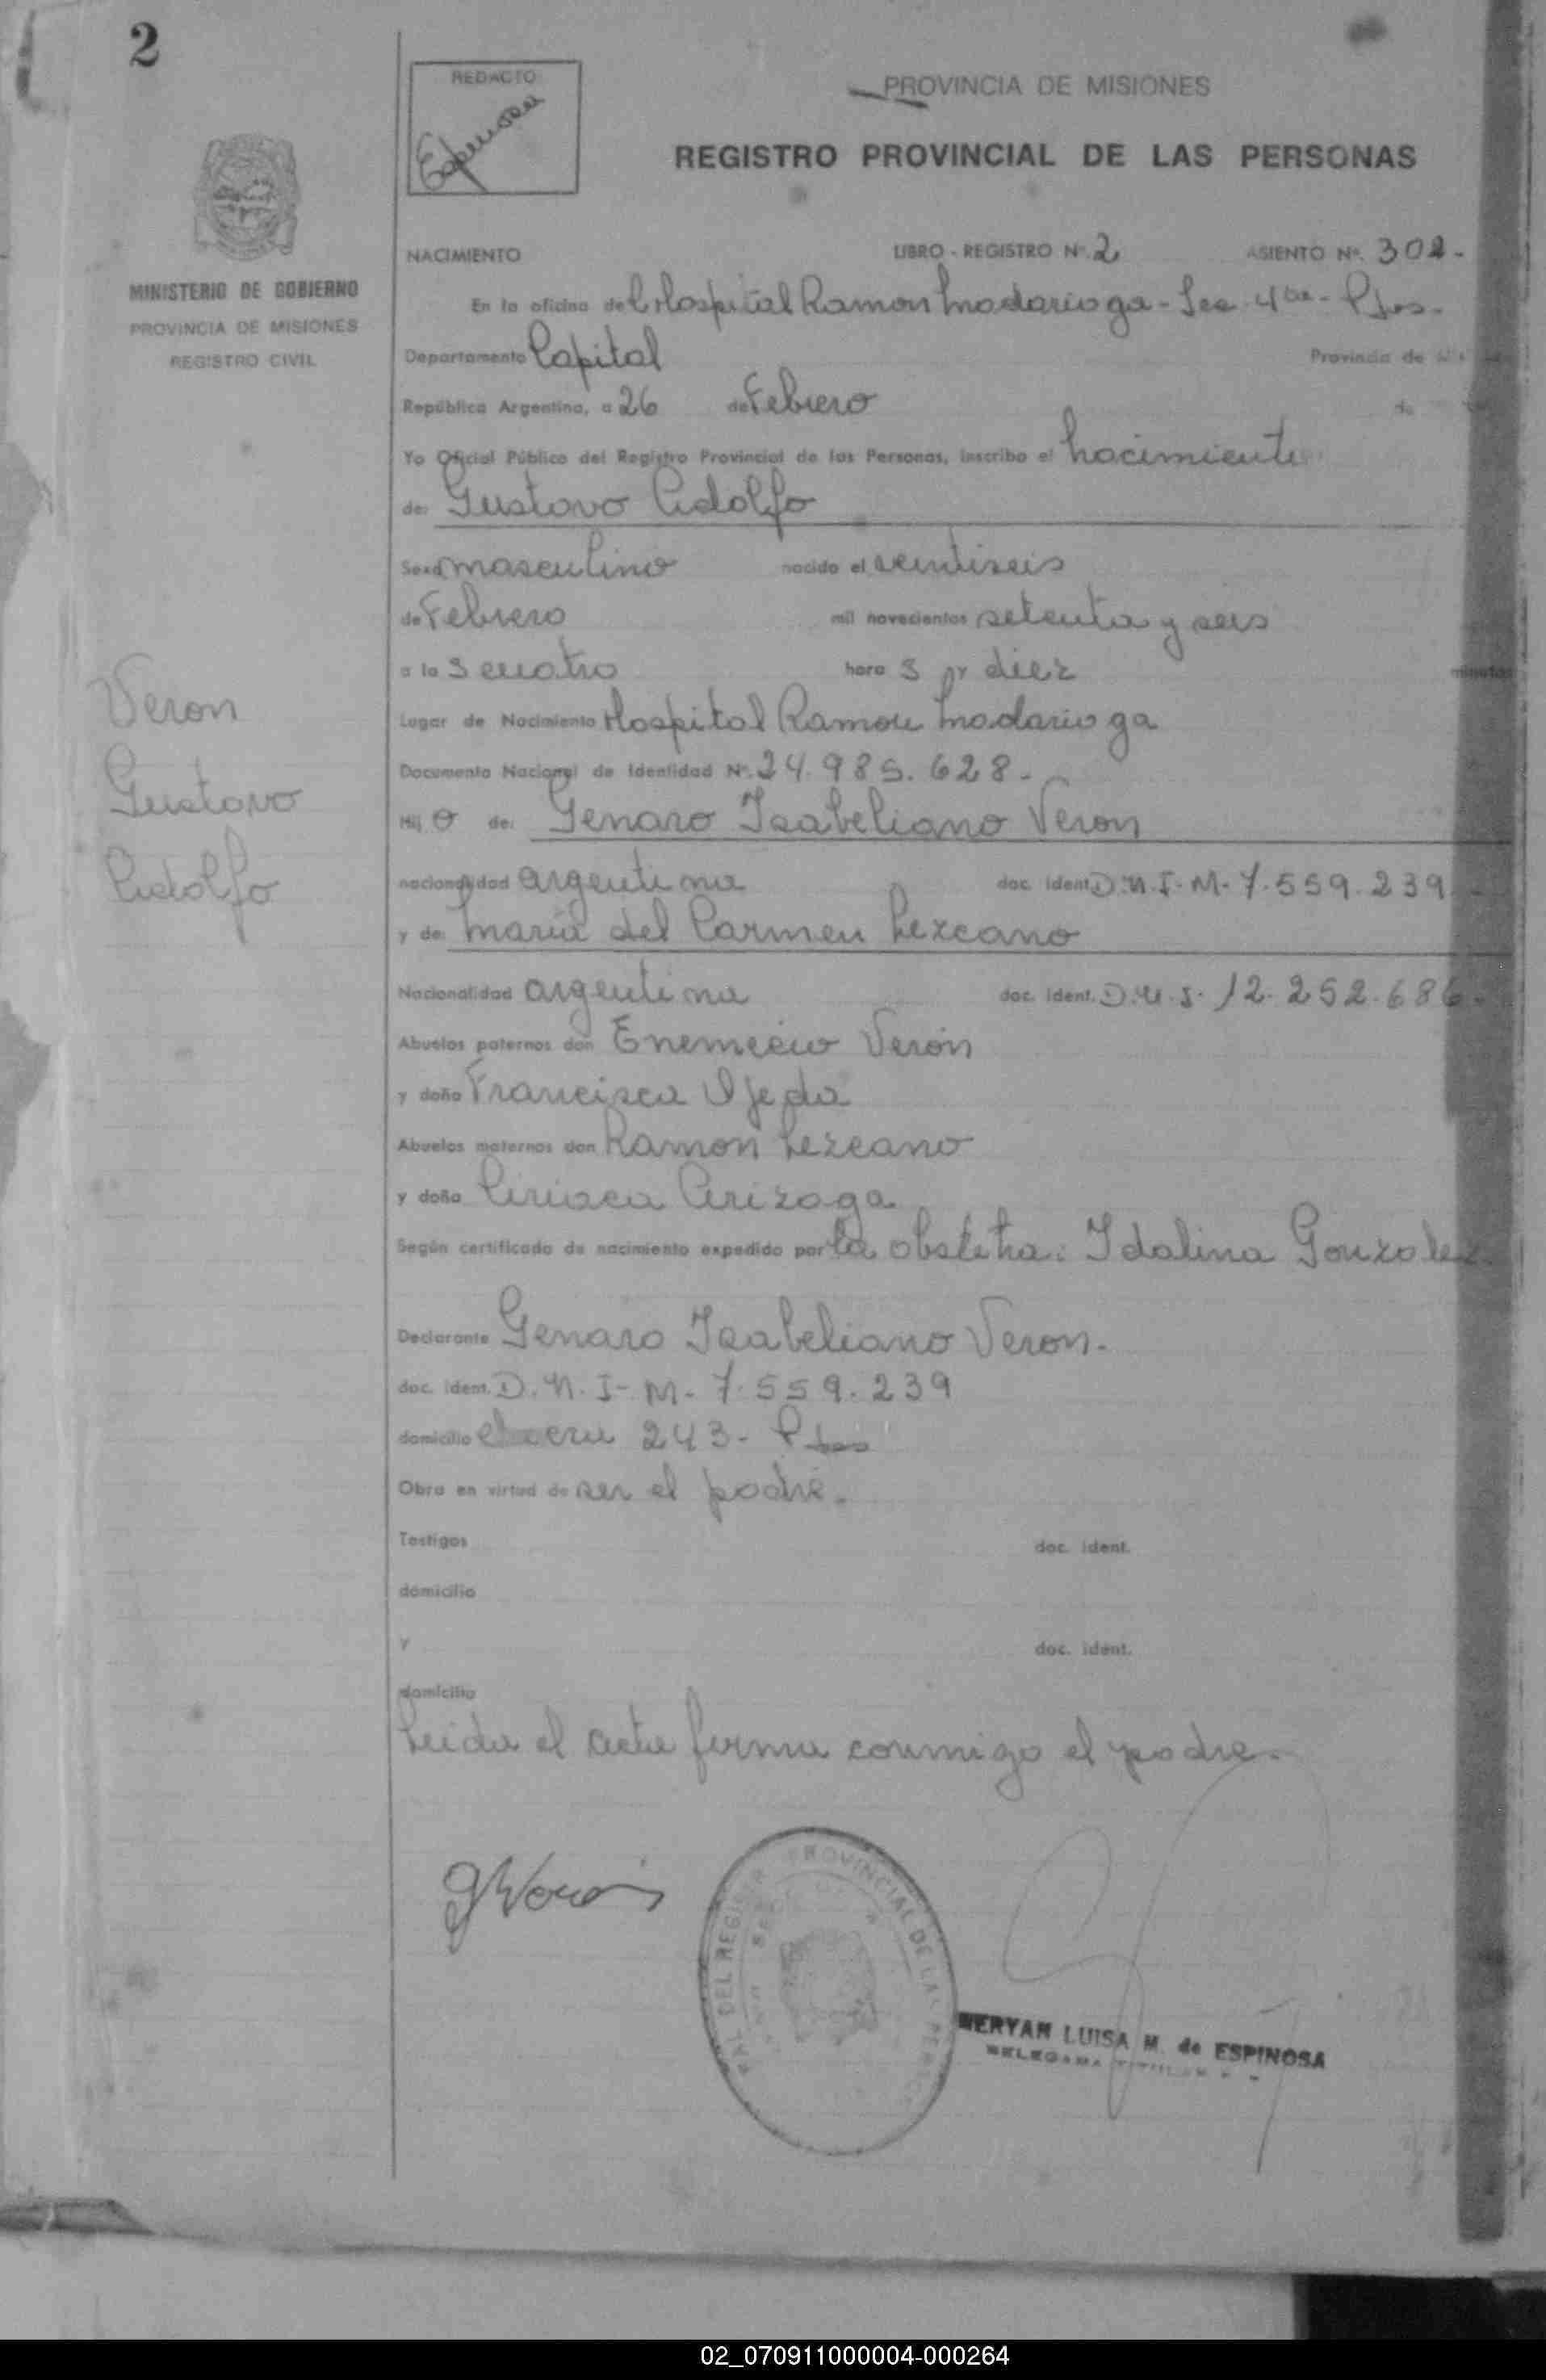 2
REDACTO
PROVINCIA DE MISIONES
REGISTRO PROVINCIAL DE LAS PERSONAS
MINISTERIO DE GOBIERNO
PROVINCIA DE MISIONES
REGISTRO CIVIL
NACIMIENTO LIBRO - REGISTRO Nº. 2 ASIENTO Nº. 302-
En la oficina del Hospital Ramon Madariaga - Sec 4ta - Pdas.
Departamento Capital Provincia de
República Argentina, a 26 de Febrero de
Yo Oficial Público del Registro Provincial de las Personas, inscribo el nacimiento
de: Gustavo Adolfo
Sexo masculino nacido el veintiseis
de Febrero mil novecientos setenta y seis
a las cuatro horas y diez minutos
Veron
Gustavo
Adolfo
Lugar de Nacimiento Hospital Ramon Madariaga
Documento Nacional de Identidad Nº. 24.985.628-
Hijo de: Genaro Isabeliano Veron
nacionalidad argentina doc. ident. D.N.I-M-7.559.239
y de: Maria del Carmen Lezcano
Nacionalidad argentina doc. ident. D.N.I. 12.252.686-
Abuelos paternos don Enemecio Verón
y doña Francisca Ojeda
Abuelos maternos don Ramon Lezcano
y doña Ciriaca Arizaga
Según certificado de nacimiento expedido por la obstetra: Idalina Gonzalez
Declarante Genaro Isabeliano Veron.
doc. ident. D.N.I-M-7.559.239
domicilio 243- Pdas
Obra en virtud de ser el padre.
Testigos doc. ident.
domicilio
y doc. ident.
domicilio
Leida el acta firma conmigo el padre.
PROVINCIAL DE LAS
DEL REGIS
MERYAN LUISA M. de ESPINOSA
DELEGADA TITULAR
02_070911000004-000264